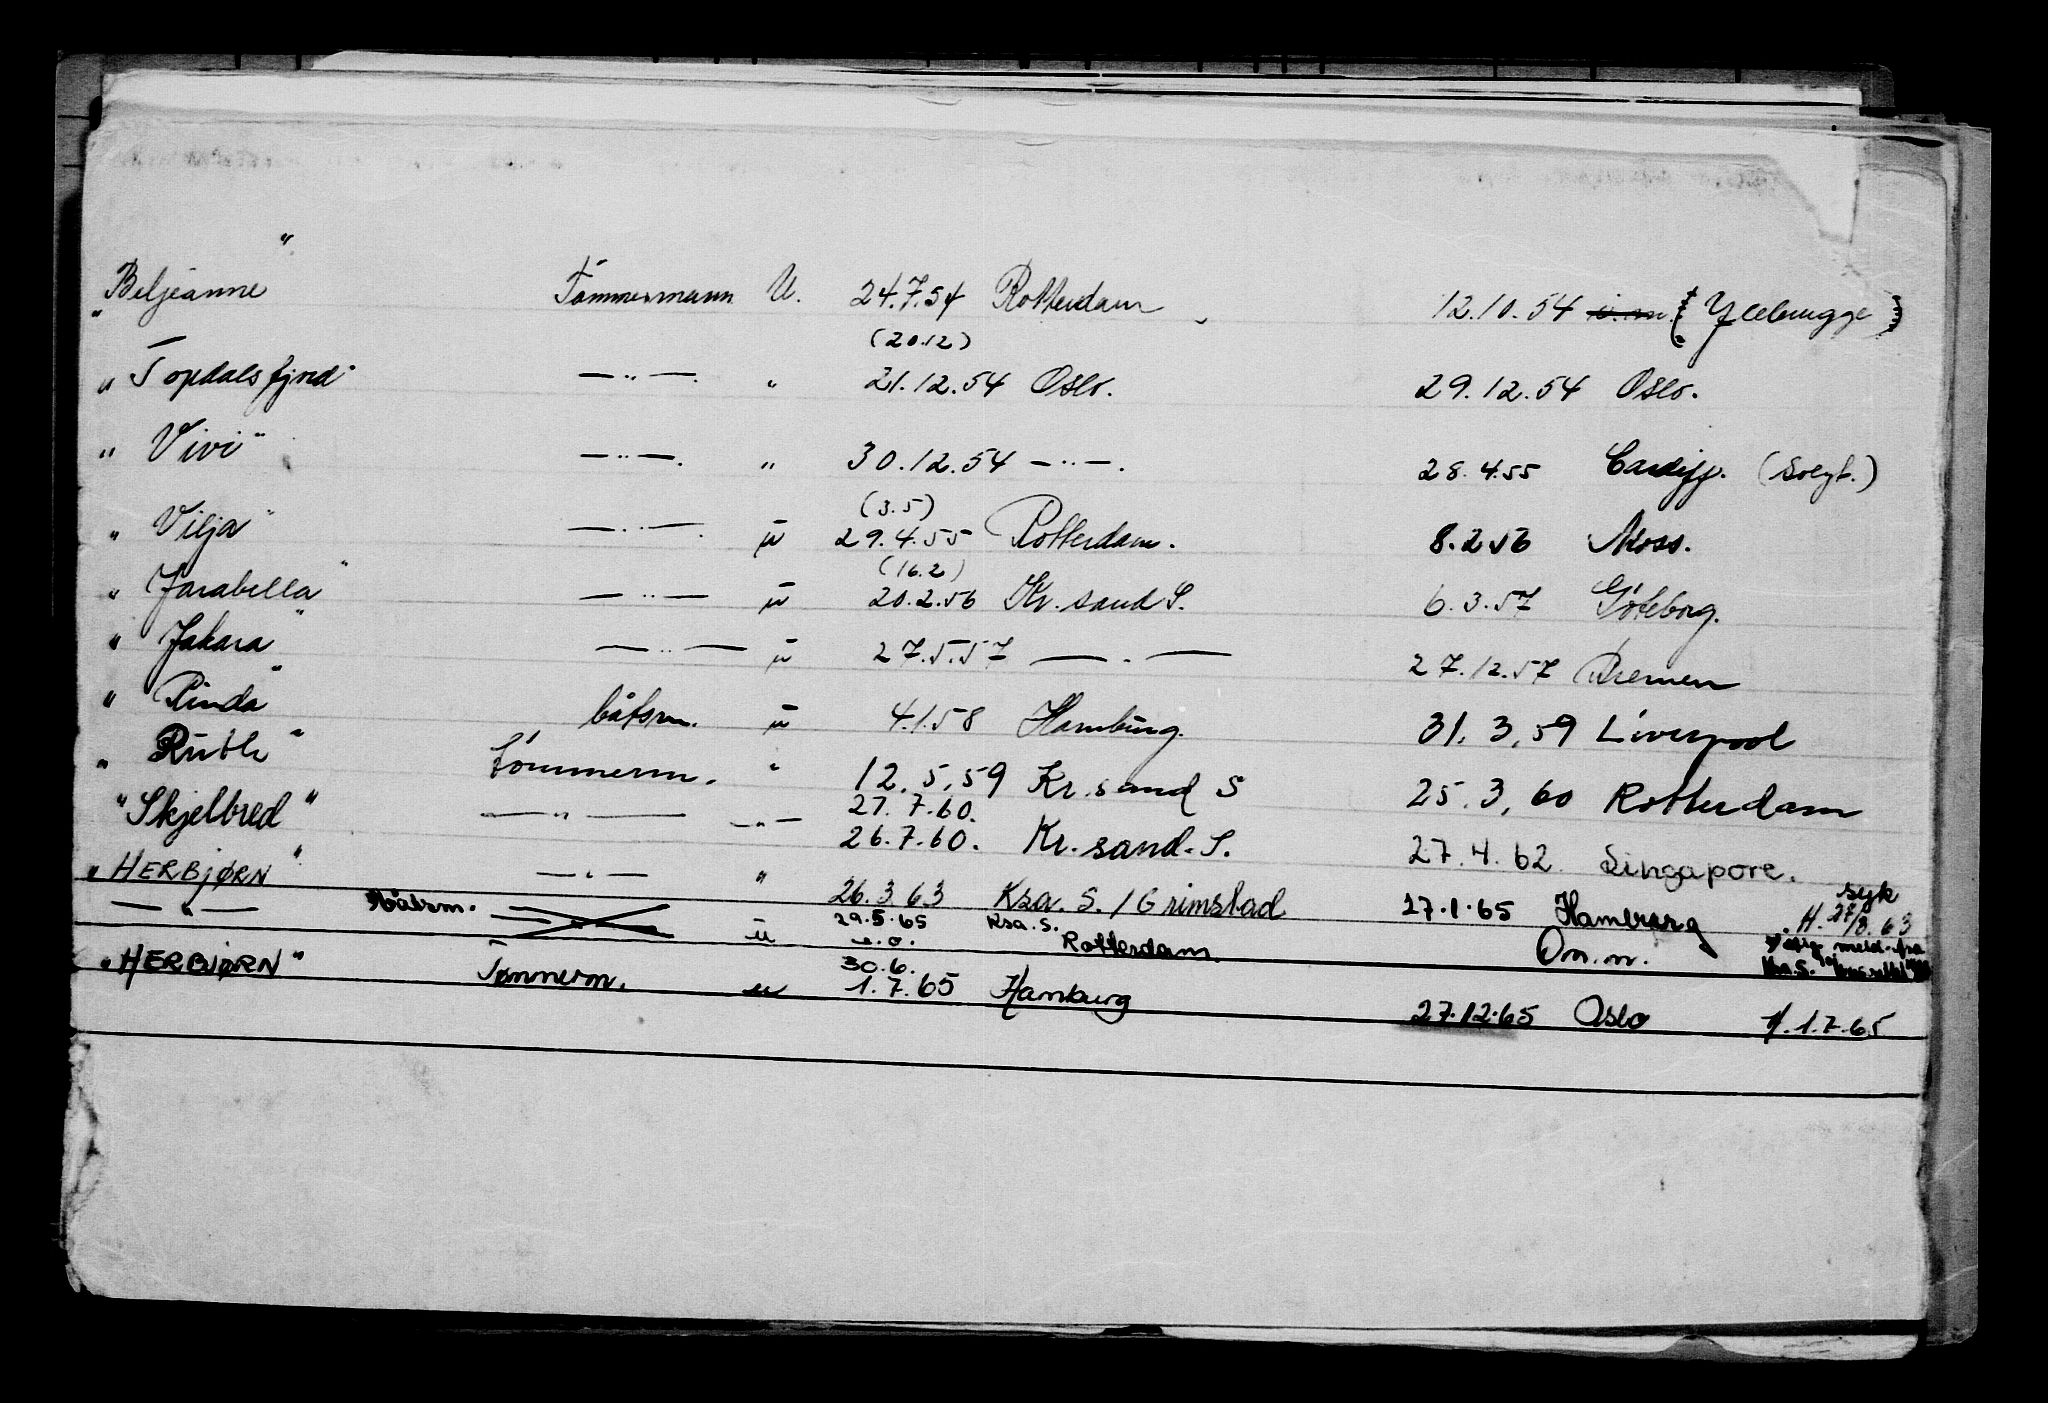 "Beljeanne" Tömmermann U. 24.7.54 Rotterdam 12.10.54 (Yllebrugge)
(20.12)
" Topdalsfjord" —"— " 21.12.54 Oslo. 29.12.54 Oslo.
" Vivi" —"—. " 30.12.54 —"—. 28.4.55 Cardiff. (Solgt.)
(3.5)
" Vilja" —"—. u 29.4.55 Rotterdam. 8.2.56 Moss.
(16.2)
" Jarabella" —"— u 20.2.56 Kr.sand S. 6.3.57 Göteborg.
" Jakara" —"— u 27.5.57 —"— 27.12.57 Bremen
" Pinda" båtsm. u 4.1.58 Hamburg. 31.3.59 Liverpool
" Ruth" tömmerm. " 12.5.59 Kr.sand S 25.3.60 Rotterdam
27.7.60.
"Skjelbred" —"— —"— 26.7.60. Kr.sand.S. 27.4.62 Singapore.
"HERBJØRN" —"— " 26.3.63 Ksa. S. / Grimstad 27.1.65 Hamburg syk
—"— Båtsm. —"— u 29.5.65 Ksa. S. H. 27/8.63
u.o. Rotterdam. On.m. meld. fra
Ksa.S.
30.6.
"HERBJØRN" Tømmerm. u 1.7.65 Hamburg 27.12.65 Oslo H. 1.7.65